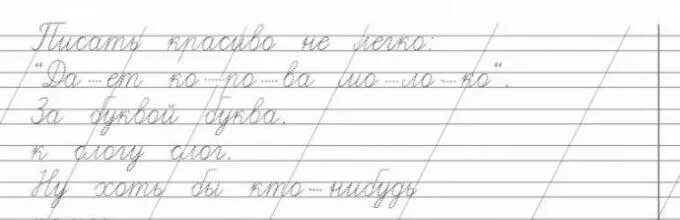 Писать красиво не легко:
"Да---ет ко---ро---ва мо---ло---ко".
За буквой буква.
к слогу слог.
Ну хоть бы кто---нибудь